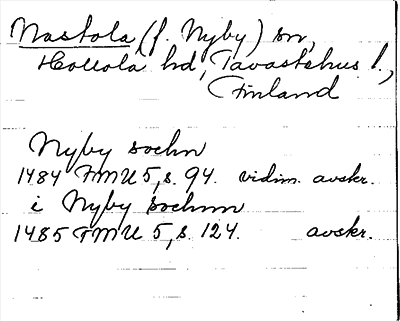 Nastola (f. Nyby) sn,
Hollola hd, Tavastehus l.,
Finland
Nyby sochn
1484 FMU 5, s. 94. vidim. avskr.
i Nyby sochnn
1485 FMU 5, s. 124. avskr.